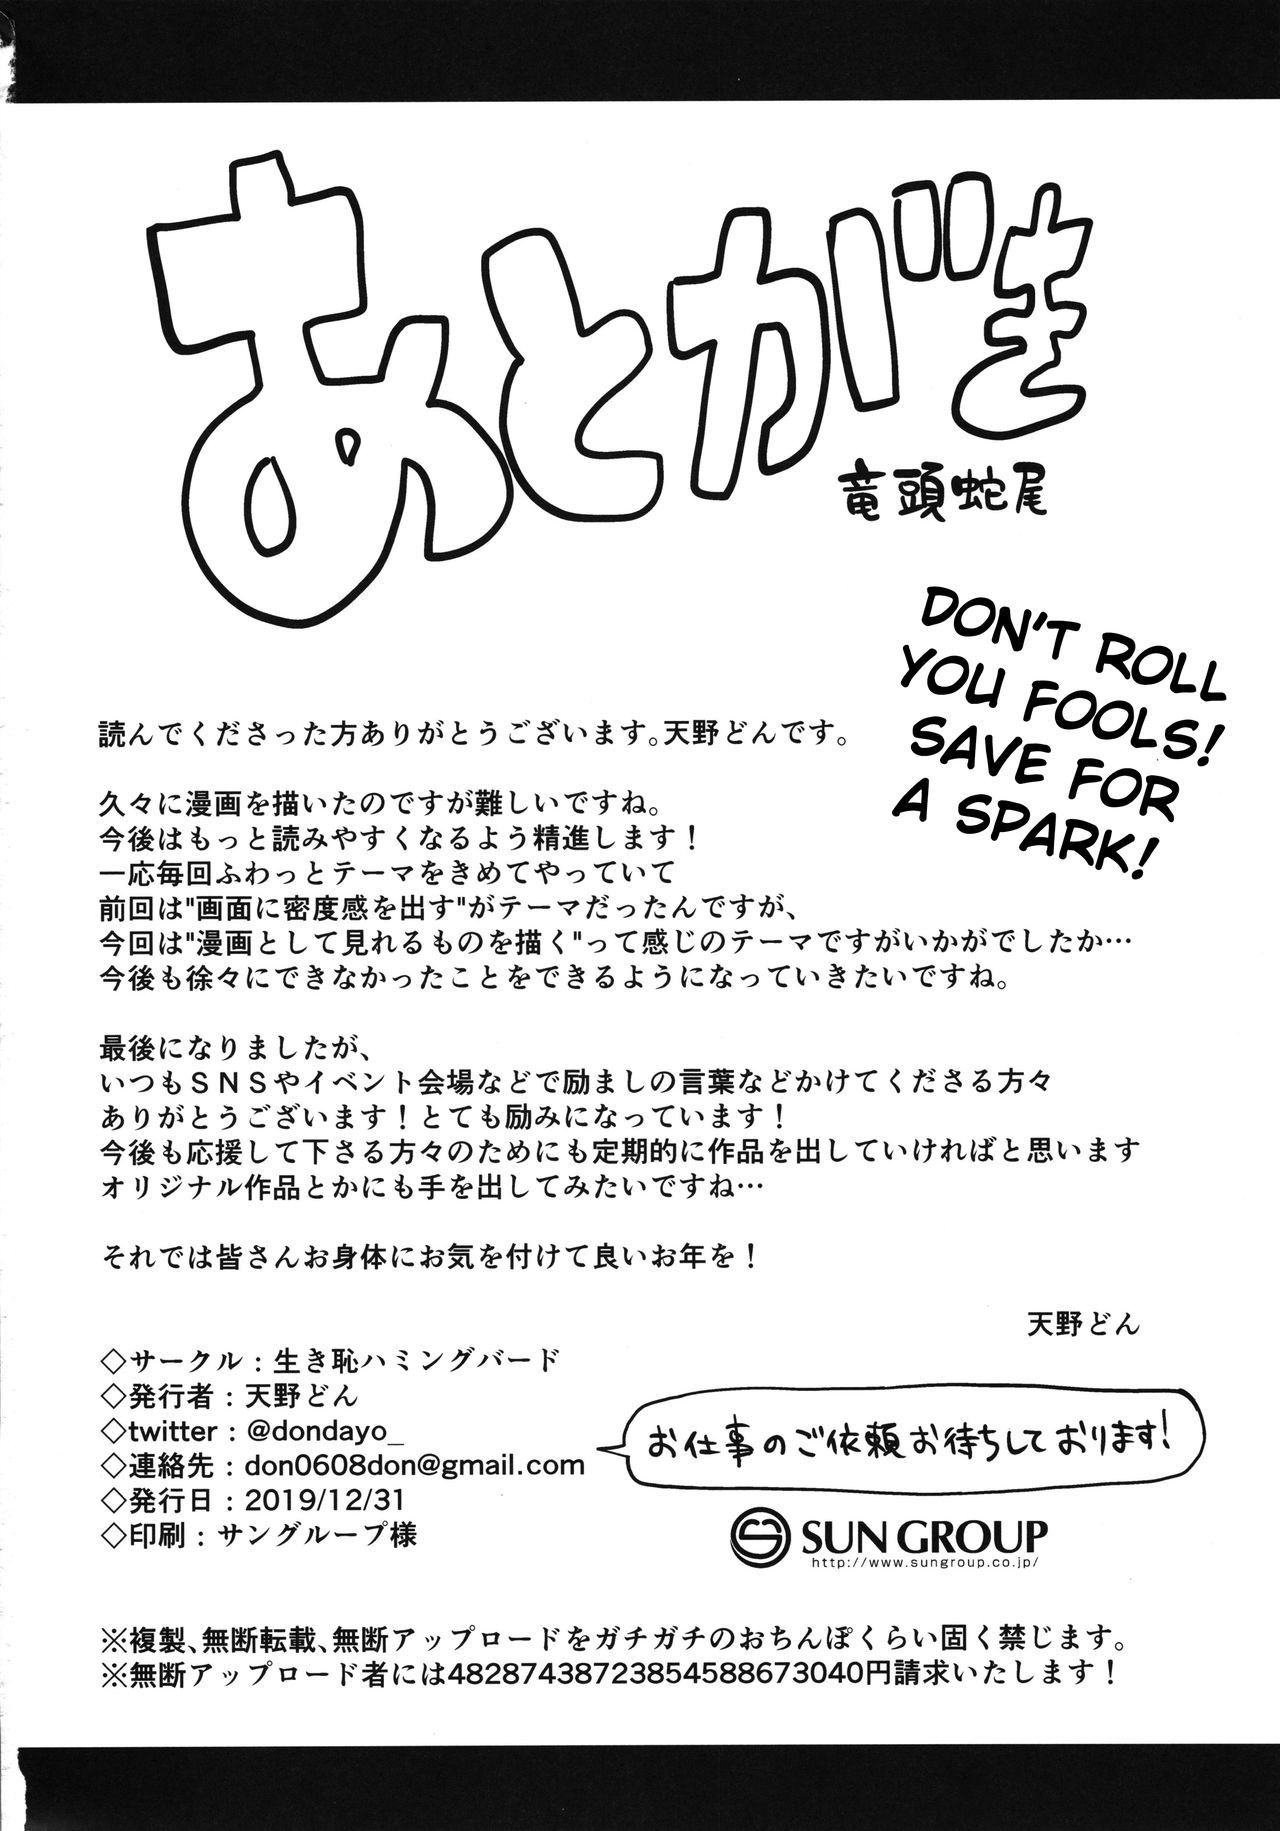 あとがき
竜頭蛇尾
DON'T ROLL
YOU FOOLS!
SAVE FOR
A SPARK!
読んでくださった方ありがとうございます。天野どんです。
久々に漫画を描いたのですが難しいですね。
今後はもっと読みやすくなるよう精進します！
一応毎回ふわっとテーマをきめてやっていて
前回は"画面に密度感を出す"がテーマだったんですが、
今回は"漫画として見れるものを描く"って感じのテーマですがいかがでしたか…
今後も徐々にできなかったことをできるようになっていきたいですね。
最後になりましたが、
いつもＳＮＳやイベント会場などで励ましの言葉などかけてくださる方々
ありがとうございます！とても励みになっています！
今後も応援して下さる方々のためにも定期的に作品を出していければと思います
オリジナル作品とかにも手を出してみたいですね…
それでは皆さんお身体にお気を付けて良いお年を！
天野どん
◇サークル：生き恥ハミングバード
◇発行者：天野どん
◇twitter：@dondayo_
◇連絡先：don0608don@gmail.com
◇発行日：2019/12/31
◇印刷：サングループ様
お仕事のご依頼お待ちしております!
SUN GROUP
http://www.sungroup.co.jp/
※複製、無断転載、無断アップロードをガチガチのおちんぽくらい固く禁じます。
※無断アップロード者には48287438723854588673040円請求いたします！